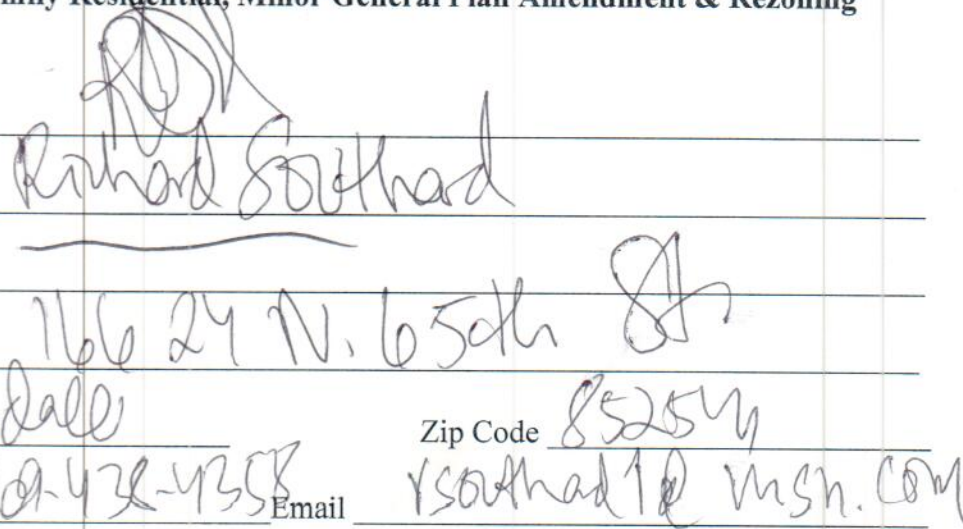 mily Residential, Minor General Plan Amendment & Rezoning
Richard Southard
16624 N. 65th St
dale Zip Code 85254
Email rsouthard1@msn.com